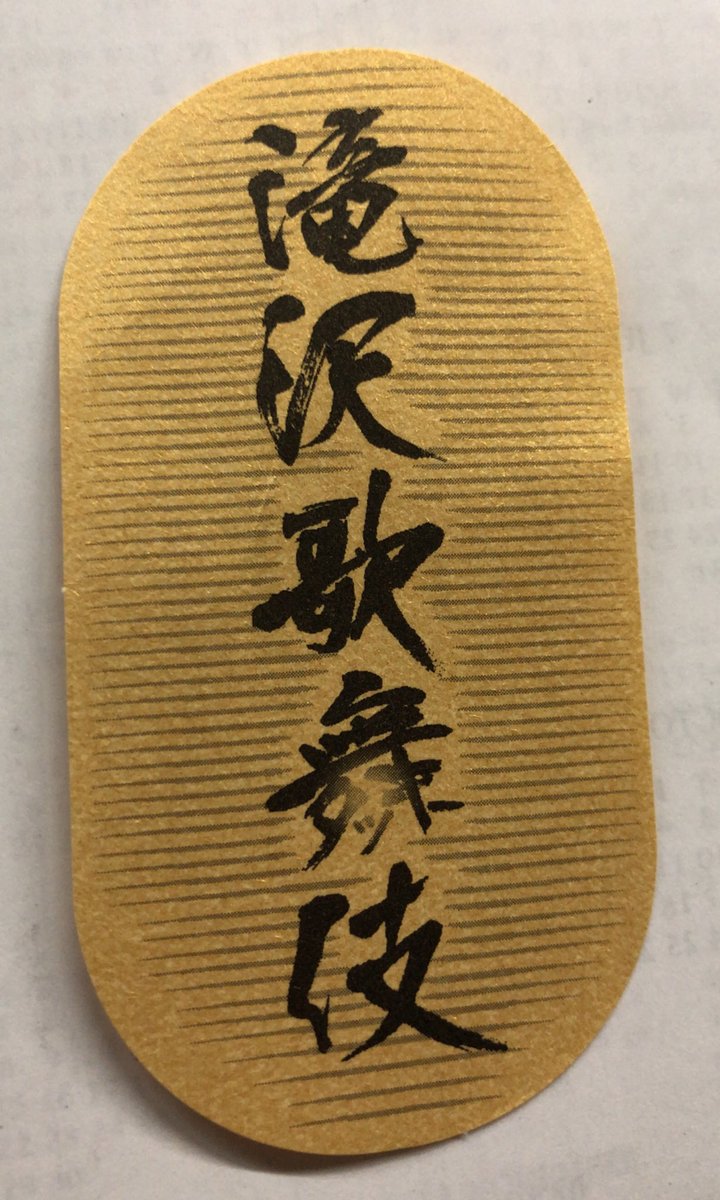 滝沢歌舞伎